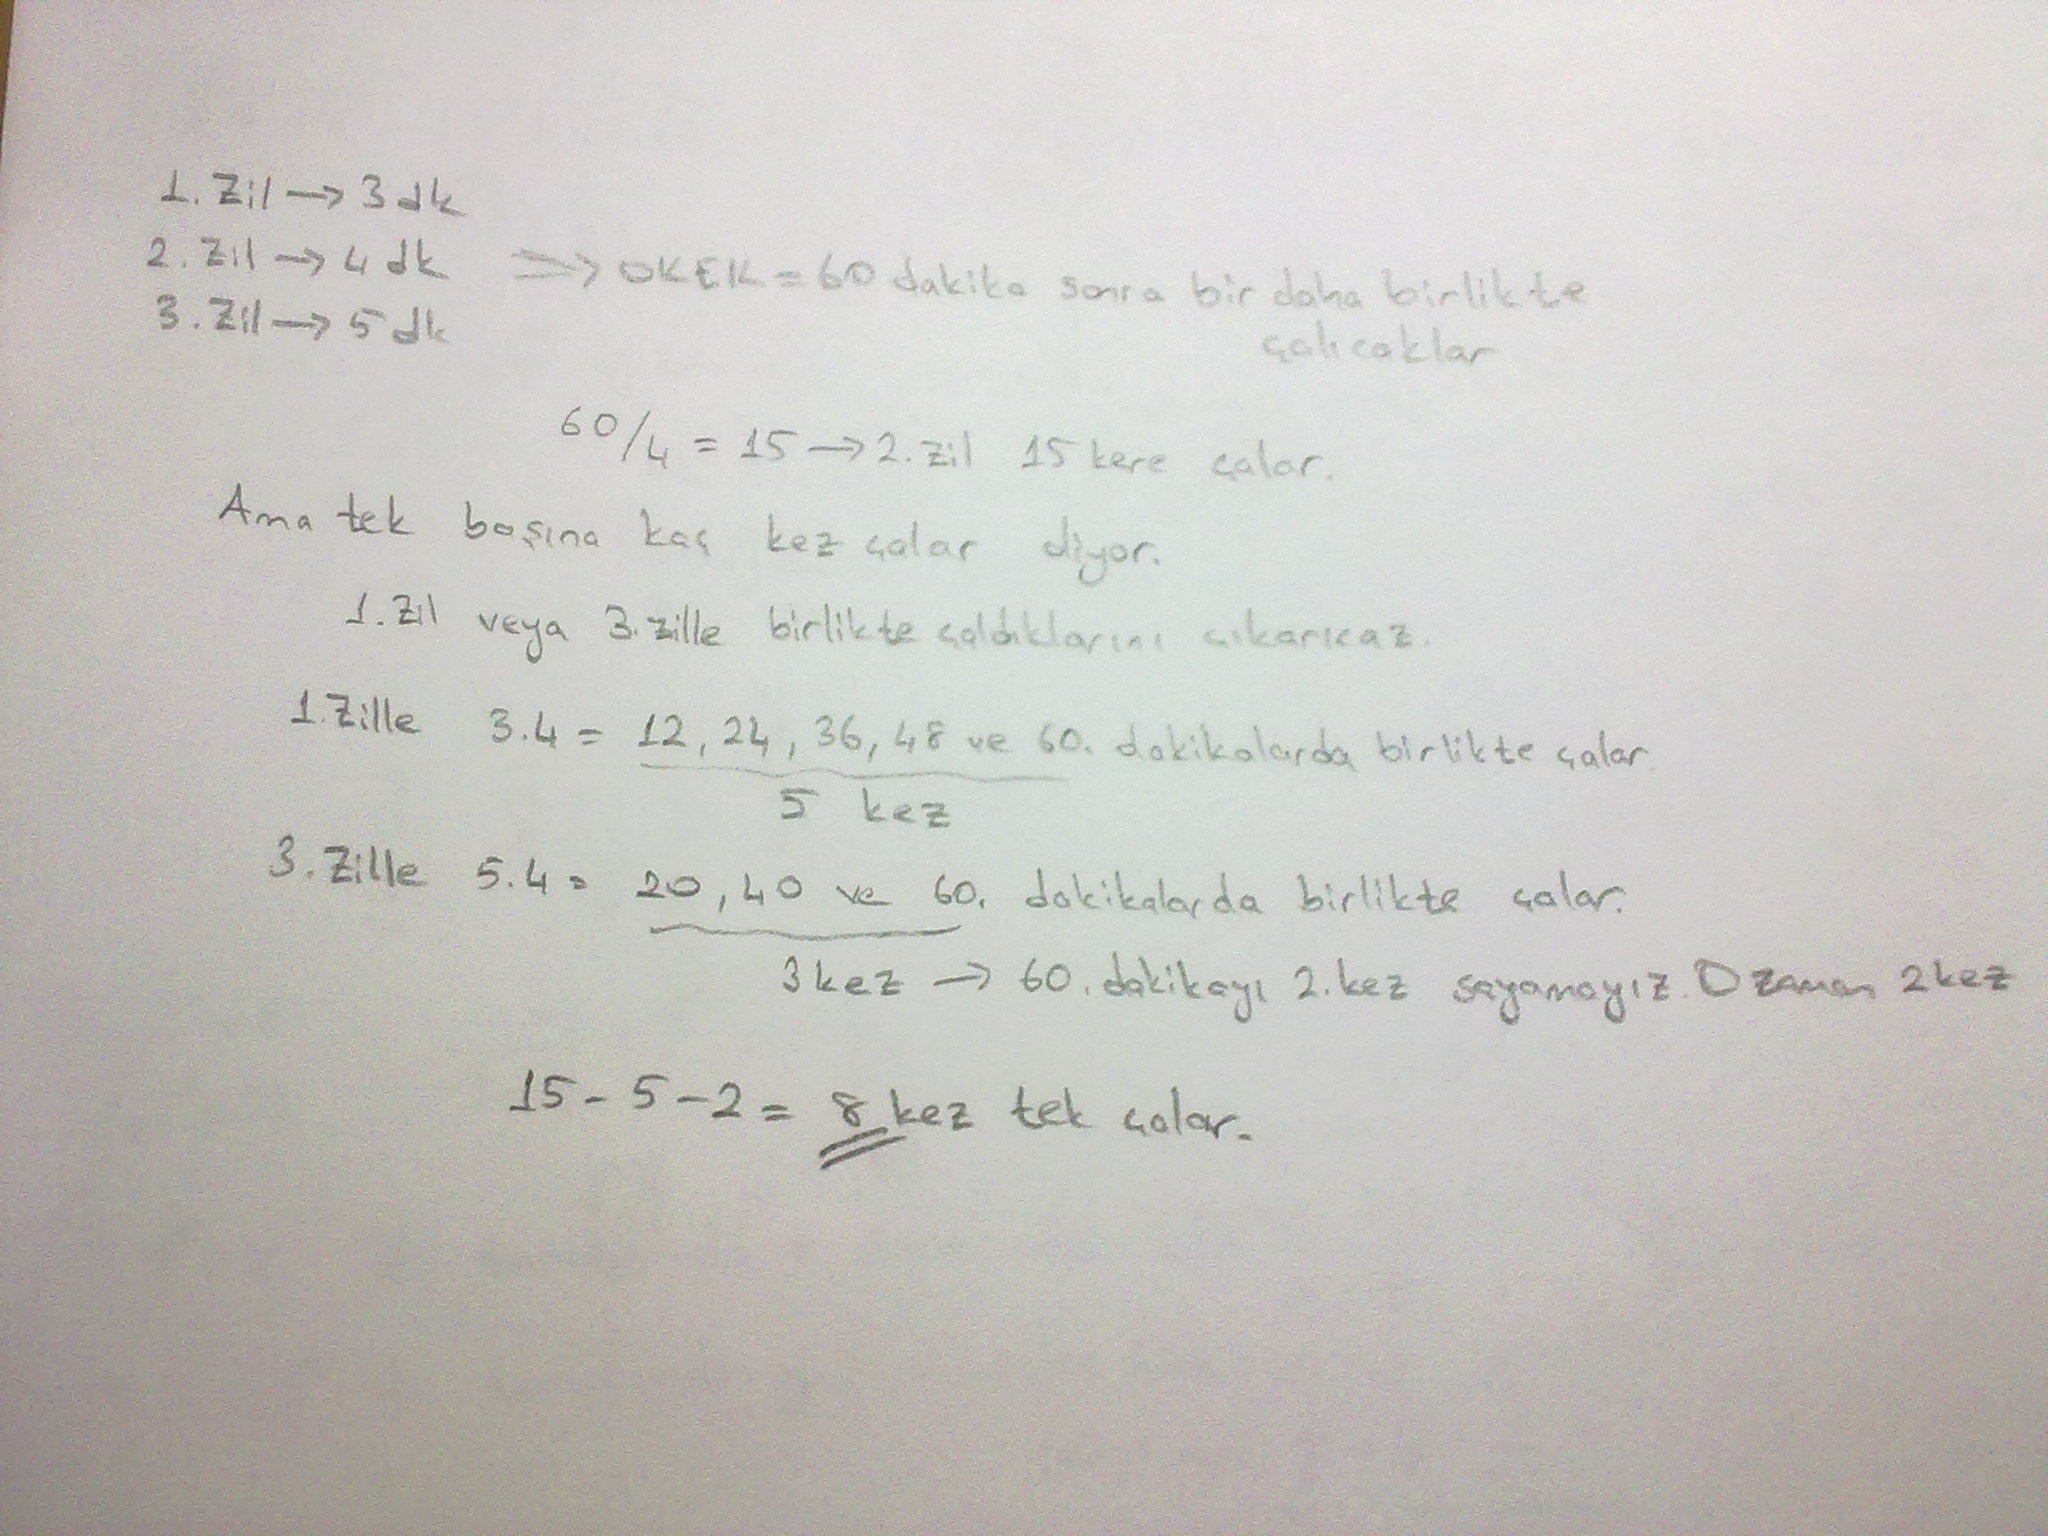 1. Zil → 3 dk
2. Zil → 4 dk ⇒ OKEK = 60 dakika sonra bir daha birlikte
3. Zil → 5 dk
çalıcaklar
60/4 = 15 → 2. zil 15 kere çalar.
Ama tek başına kaç kez çalar diyor.
1. zil veya 3. zille birlikte çaldıklarını çıkarıcaz.
1. Zille 3.4 = 12, 24, 36, 48 ve 60. dakikalarda birlikte çalar.
5 kez
3. Zille 5.4 = 20, 40 ve 60. dakikalarda birlikte çalar.
3 kez → 60. dakikayı 2. kez sayamayız. O zaman 2 kez
15 - 5 - 2 = 8 kez tek çalar.